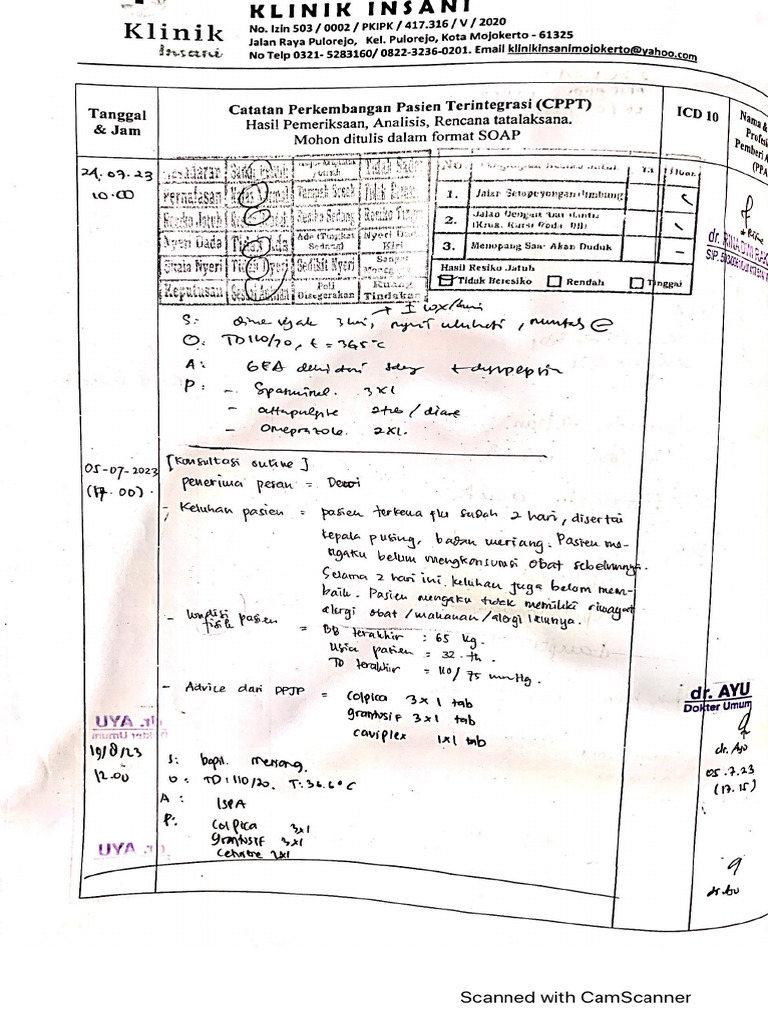 KLINIK INSANI
Klinik
Insani
No. Izin 503 / 0002 / PKIPK / 417.316 / V / 2020
Jalan Raya Pulorejo, Kel. Pulorejo, Kota Mojokerto - 61325
No Telp 0321- 5283160/ 0822-3236-0201. Email klinikinsanimojokerto@yahoo.com
Tanggal & Jam
Catatan Perkembangan Pasien Terintegrasi (CPPT)
Hasil Pemeriksaan, Analisis, Rencana tatalaksana.
Mohon ditulis dalam format SOAP
ICD 10
Nama &
Profesi
Pemberi A
(PPA
24.07.23
10.00
Kesadaran
Pernafasan Tampak Sesak
Resiko Jatuh Resiko Sedang Resiko Tinggi
Nyeri Dada Tidak Ada Ada (Tingkat Sedang) Nyeri Dada Kiri
Skala Nyeri Tidak Nyeri Sedikit Nyeri
Keputusan Poli Disegerakan Ruang Tindakan
No.
1. Jalan Sempoyongan/Limbang
2. Jalan Dengan Alat Bantu
3. Menopang Saat Akan Duduk -
Hasil Resiko Jatuh
Tidak Beresiko Rendah Tinggi
± 10x/hari
S: diare sejak 3 hari, nyeri uluhati, muntah
O: TD 110/70, t = 36,5°C
A: GEA + dyspepsia
P: - 3x1
- attapulgite 2tab / diare
- Omeprazole 2x1.
05-07-2023
(17.00).
[Konsultasi online]
penerima pesan = Dewi
- Keluhan pasien = pasien terkena flu sudah 2 hari, disertai
kepala pusing, badan meriang. Pasien me-
ngaku belum mengkonsumsi obat sebelumnya.
Selama 2 hari ini keluhan juga belom mem-
baik. Pasien mengaku tidak memiliki riwayat
alergi obat / makanan / alergi lainnya.
- kondisi pasien fisik = BB terakhir : 65 kg.
Usia pasien = 32 th.
TD terakhir = 110/75 mmHg.
- Advice dari DPJP = Colpica 3 x 1 tab
grantusif 3x1 tab
caviplex 1x1 tab
dr. AYU
Dokter Umum
dr. Ayu
05.7.23
(17.15)
19/8/23
12.00
S: bapil meriang.
O: TD: 110/70. T: 36.6°C
A: ISPA
P: Colpica 3x1
grantusif 3x1
dr. Ayu
Scanned with CamScanner